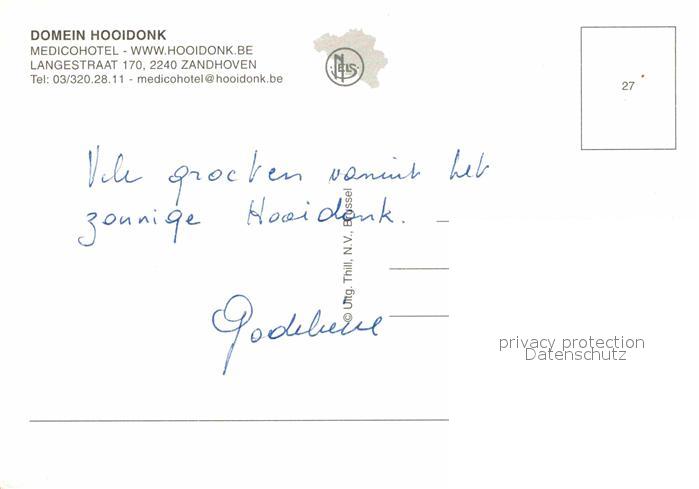 DOMEIN HOOIDONK
MEDICOHOTEL - WWW.HOOIDONK.BE
LANGESTRAAT 170, 2240 ZANDHOVEN
Tel: 03/320.28.11 - medicohotel@hooidonk.be
NELS
27
Vele groeten vanuit het
zonnige Hooidonk.
© Uitg. Thill, N.V., Brussel
Godelieve
privacy protection
Datenschutz